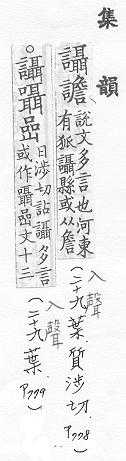 集韻
讘讝說文多言也河東
有狐讘縣或从詹
入聲
（二十九葉．質涉切．P778）
。讘囁嵒日涉切詀讘多言
或作囁嵒文十二
入聲
（二十九葉．P779）